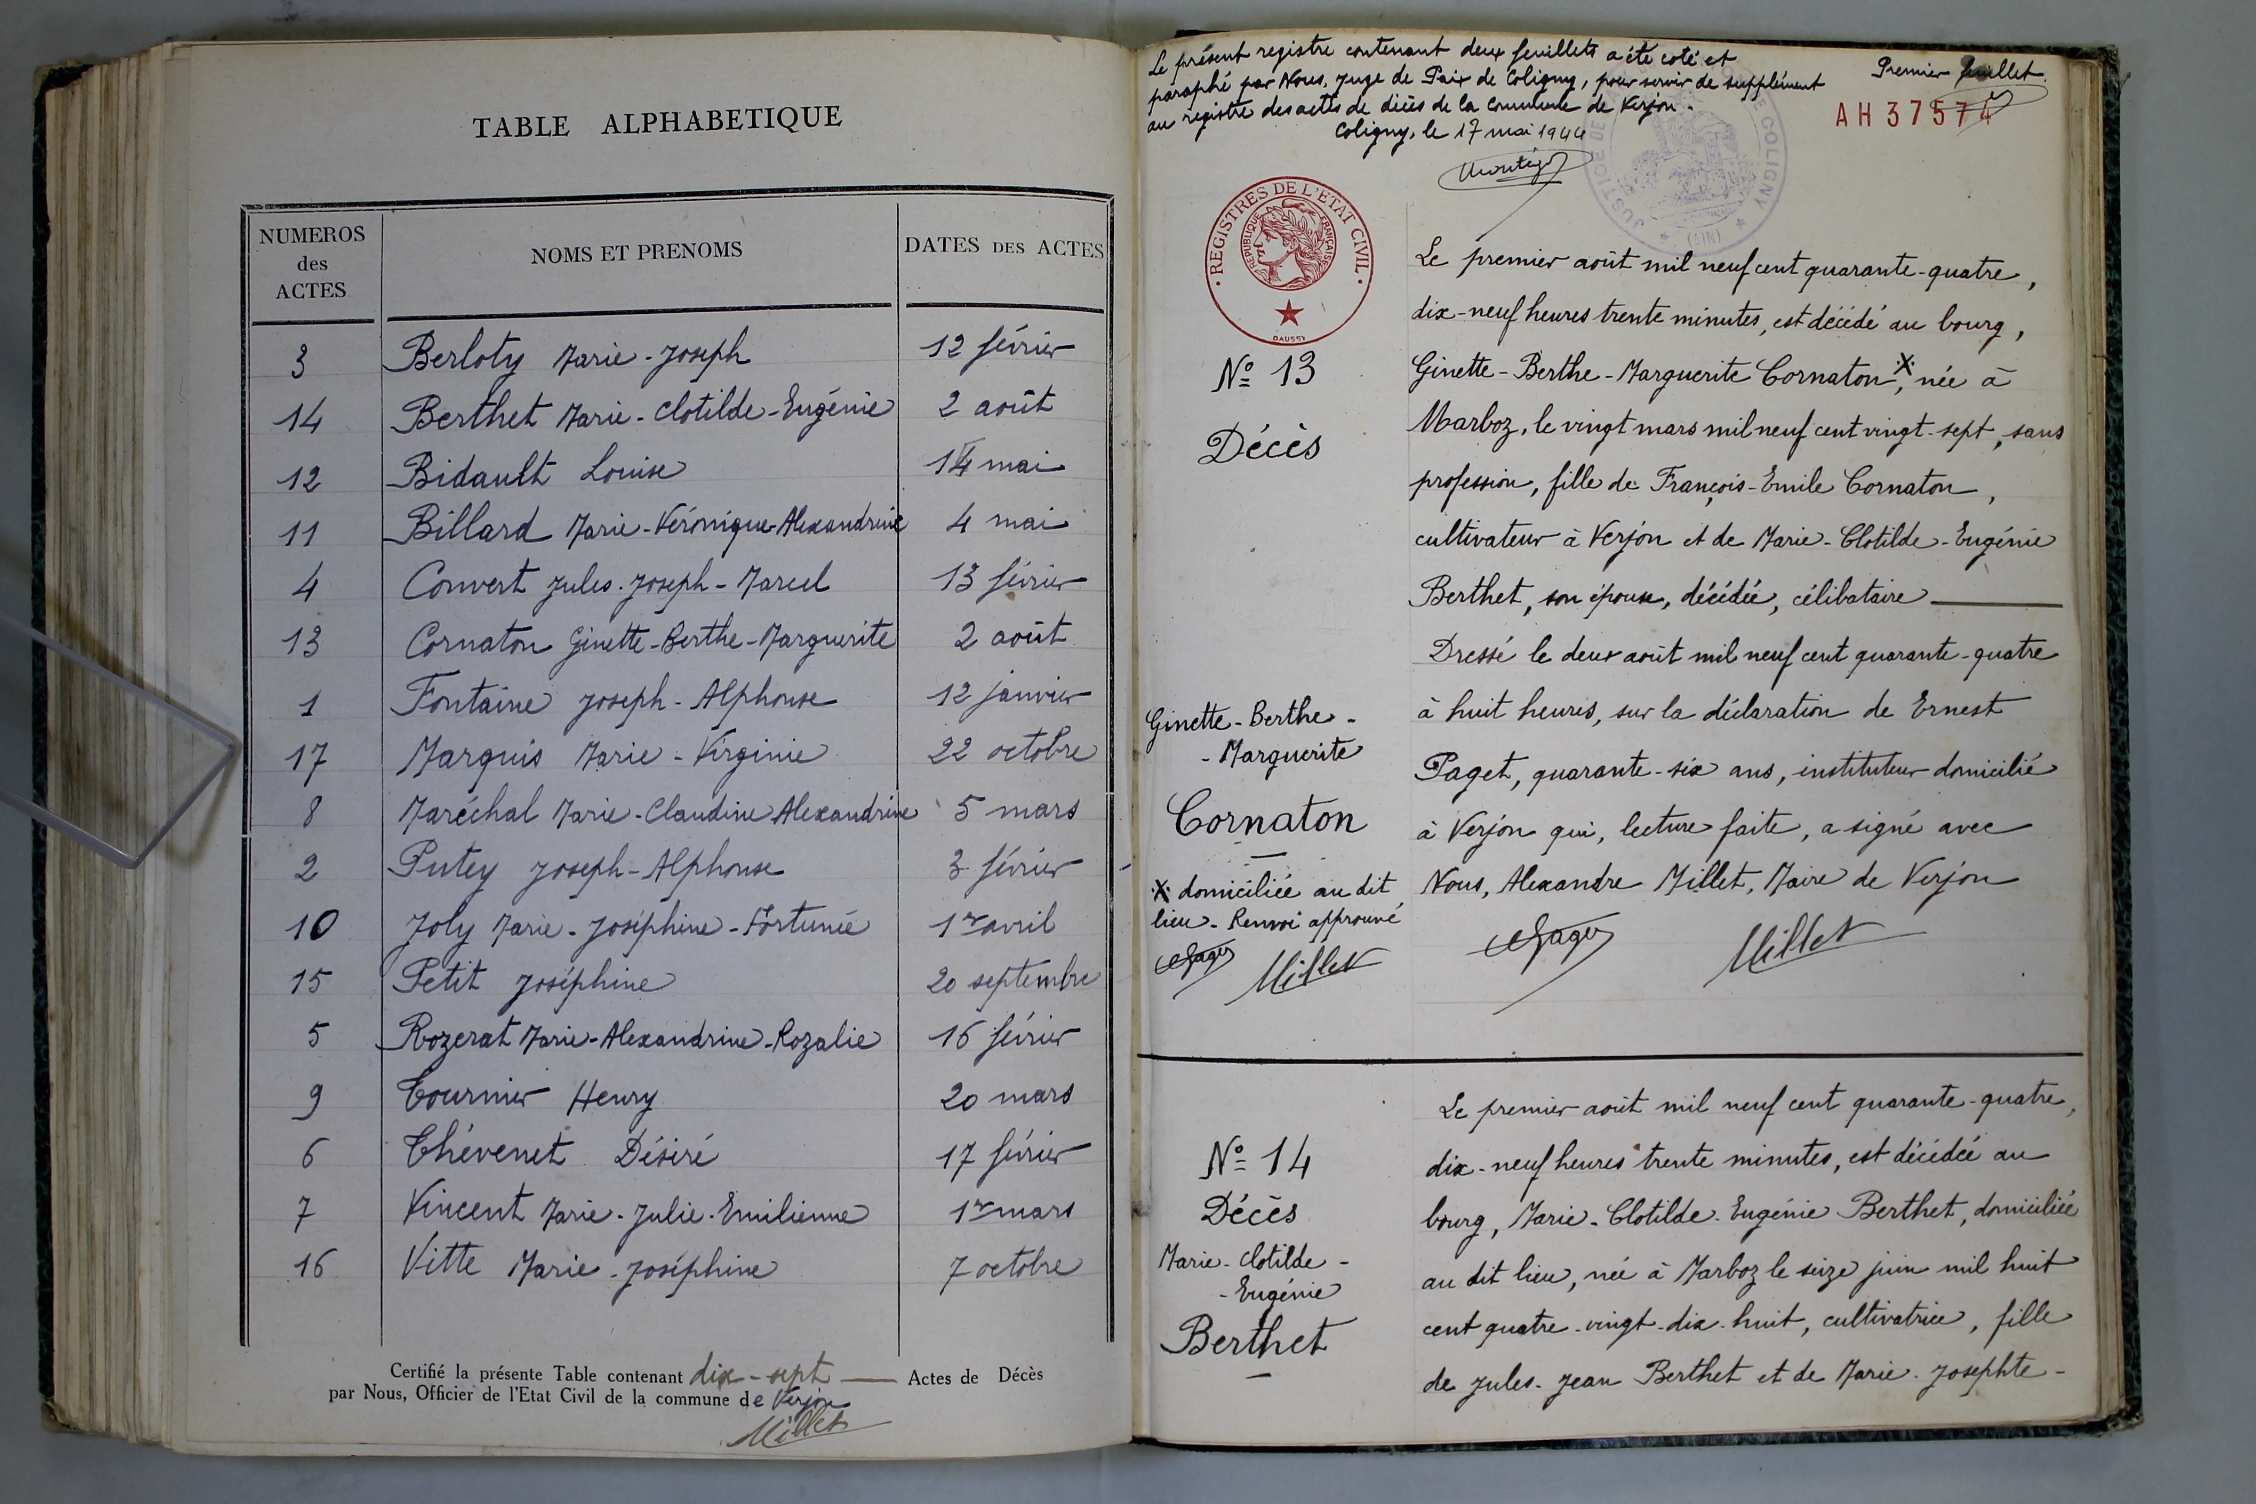 TABLE ALPHABETIQUE
NUMEROS des ACTES
NOMS ET PRENOMS
DATES DES ACTES
3 Berloty Marie-Joseph 12 février
14 Berthet Marie-Clotilde-Eugénie 2 août
12 Bidault Louise 14 mai
11 Billard Marie-Véronique-Alexandrine 4 mai
4 Convert Jules-Joseph-Marcel 13 février
13 Cornaton Ginette-Berthe-Marguerite 2 août
1 Fontaine Joseph-Alphonse 12 janvier
17 Marquis Marie-Virginie 22 octobre
8 Maréchal Marie-Claudine Alexandrine 5 mars
2 Putey Joseph-Alphonse 3 février
10 Joly Marie-Joséphine-Fortunée 1er avril
15 Petit Joséphine 20 septembre
5 Rozerat Marie-Alexandrine-Rozalie 16 février
9 Tournier Henry 20 mars
6 Thévenet Désiré 17 février
7 Vincent Marie-Julie-Emilienne 1er mars
16 Vitte Marie-Joséphine 7 octobre
Certifié la présente Table contenant dix-sept Actes de Décès
par Nous, Officier de l'Etat Civil de la commune de Verjon
Millet
Le présent registre contenant deux feuillets a été coté et
paraphé par Nous, Juge de Paix de Coligny, pour servir de supplément
au registre des actes de décès de la Commune de Verjon.
Coligny, le 17 mai 1944
Premier feuillet.
AH 37574
JUSTICE DE COLIGNY
(AIN)
REGISTRES DE L'ETAT CIVIL
REPUBLIQUE FRANÇAISE
DAUSSY
No 13
Décès
Ginette-Berthe-
-Marguerite
Cornaton
X domiciliée au dit
lieu. Renvoi approuvé
Millet
Le premier août mil neuf cent quarante-quatre,
dix-neuf heures trente minutes, est décédé au bourg,
Ginette-Berthe-Marguerite Cornaton X, née à
Marboz, le vingt mars mil neuf cent vingt-sept, sans
profession, fille de François-Emile Cornaton,
cultivateur à Verjon et de Marie-Clotilde-Eugénie
Berthet, son épouse, décédée, célibataire
Dressé le deux août mil neuf cent quarante-quatre
à huit heures, sur la déclaration de Ernest
Paget, quarante-six ans, instituteur domicilié
à Verjon qui, lecture faite, a signé avec
Nous, Alexandre Millet, Maire de Verjon
Millet
No 14
Décès
Marie-Clotilde-
-Eugénie
Berthet
Le premier août mil neuf cent quarante-quatre,
dix-neuf heures trente minutes, est décédée au
bourg, Marie-Clotilde-Eugénie Berthet, domiciliée
au dit lieu, née à Marboz le seize juin mil huit
cent quatre-vingt-dix-huit, cultivatrice, fille
de Jules-Jean Berthet et de Marie-Josephte-